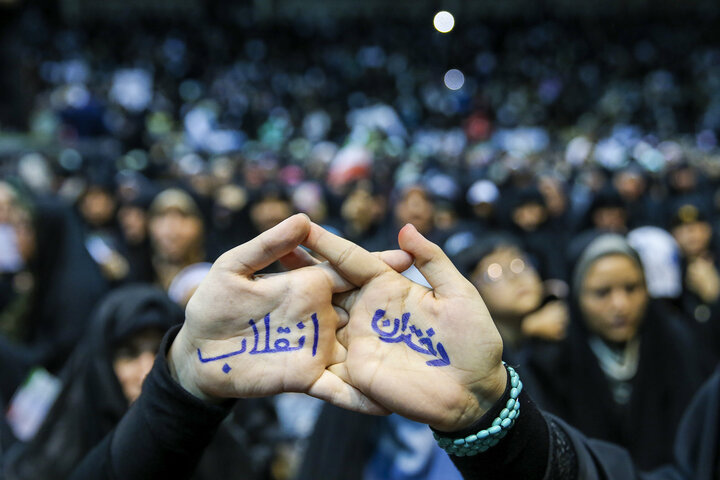 دختران
انقلاب